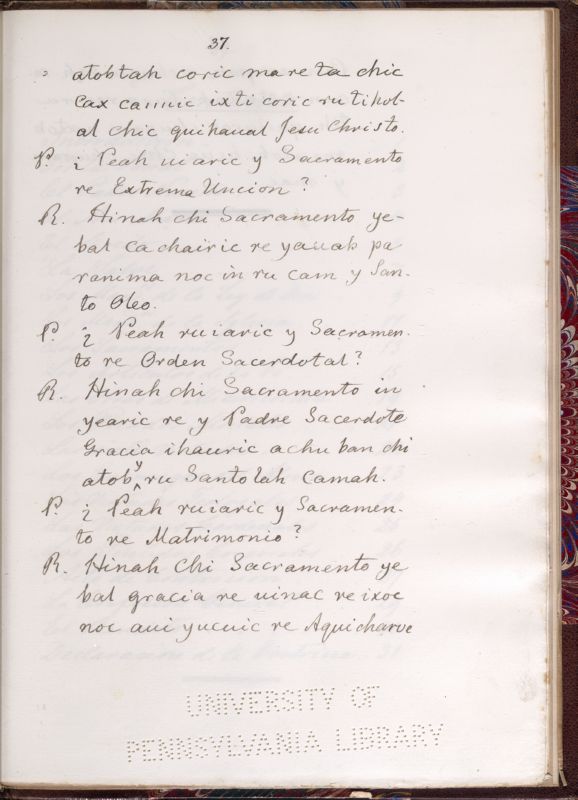 37.
atobtah coric ma re ta chic
Cax caniuic ixti coric ru tihol-
al chic quihaual Jesu Christo.
P. ¿ Peah uiaric y Sacramento
re Extrema Uncion?
R. Hinah chi Sacramento ye-
bal ca chairic re yauab pa
ranima noc in ru cam y San-
to Oleo.
P. ¿ Peah ruiaric y Sacramen-
to re Orden Sacerdotal?
R. Hinah chi Sacramento in
yearic re y Padre Sacerdote
Gracia ihauric achu ban chi
atob y ru Santo lah Camah.
P. ¿ Peah ruiaric y Sacramen-
to re Matrimonio?
R. Hinah Chi Sacramento ye
bal gracia re uinac re ixoc
noc aui yucuic re Aquicharve
UNIVERSITY OF
PENNSYLVANIA LIBRARY